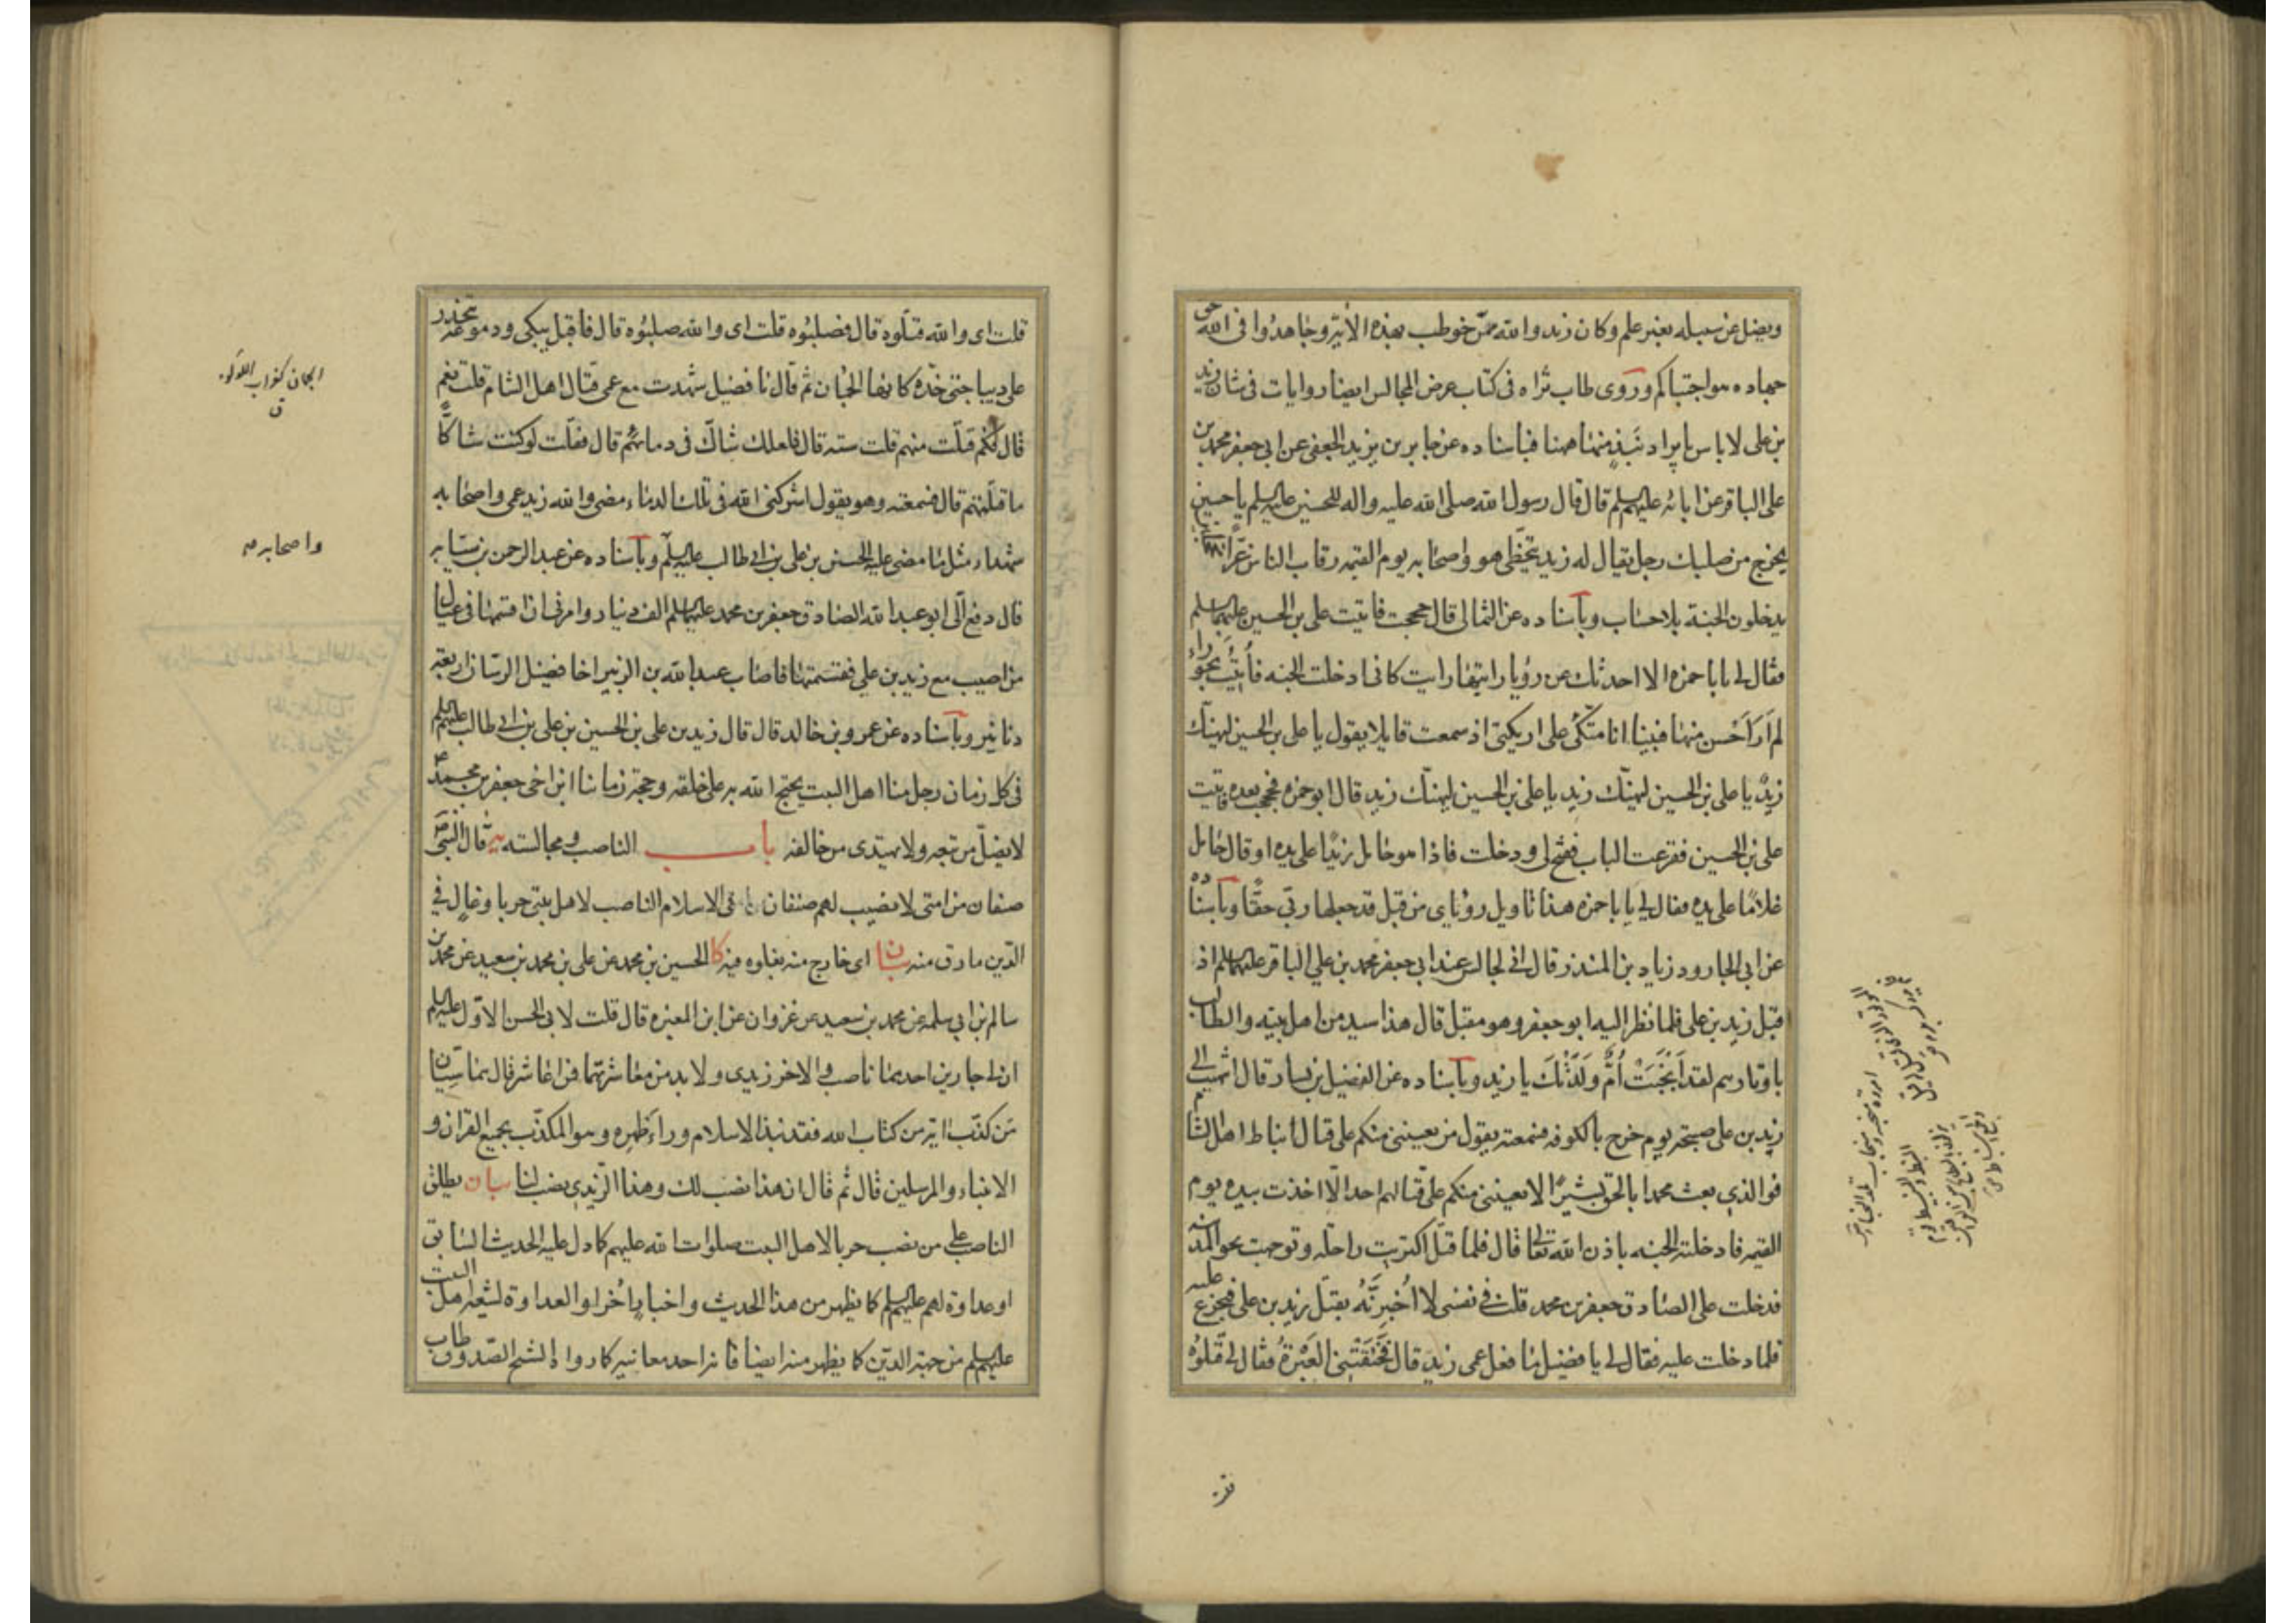 ويضل عن سبيله بغير علم وكان زيد والله ممن خوطب بهذه الآية وجاهدوا في الله حق
جهاده هو اجتباكم وروى طاب ثراه في كتاب عرض المجالس ايضا روايات في شان زيد
بن علي لا باس بايراد نبذ منها هنا فباسناده عن جابر بن يزيد الجعفي عن ابي جعفر محمد بن
علي الباقر عن ابائه عليهم السلم قال قال رسول الله صلى الله عليه واله للحسين عليه السلم يا حسين
يخرج من صلبك رجل يقال له زيد يتخطى هو واصحابه يوم القيمه رقاب الناس غرا محجلين
يدخلون الجنة بلا حساب وباسناده عن الثمالي قال حججت فاتيت علي بن الحسين عليهما السلم
فقال لي يا با حمزه الا احدثك عن رؤيا رايتها رايت كاني ادخلت الجنه فأتيت بحوراء
لم أر أحسن منها فبينا انا متكئ على اريكتي اذ سمعت قايلا يقول يا علي بن الحسين ليهنك
زيد يا علي بن الحسين ليهنك زيد يا علي بن الحسين ليهنك زيد قال ابو حمزه فحججت بعده فاتيت
علي بن الحسين فقرعت الباب ففتح لي ودخلت فاذا هو حامل زيدا على يده او قال حامل
غلاما على يده فقال لي يا با حمزه هذا تاويل رؤياي من قبل قد جعلها ربي حقا وباسناده
عن ابي الجارود زياد بن المنذر قال اني لجالس عند ابي جعفر محمد بن علي الباقر عليهما السلم اذ
قبل زيد بن علي فلما نظر اليه ابو جعفر وهو مقبل قال هذا سيد من اهل بيته والطالب
باوتارهم لقد أنجبت أم ولدتك يا زيد وباسناده عن الفضيل بن يسار قال انتهيت الى
زيد بن علي صبيحة يوم خرج بالكوفه فسمعته يقول من يعينني منكم على قتال انباط اهل الشام
فوالذي بعث محمدا بالحق بشيرا لا يعينني منكم على قتالهم احد الا اخذت بيده يوم
القيمه فادخلته الجنه باذن الله تعالى قال فلما قتل اكتريت راحله وتوجهت نحو المدينه
فدخلت على الصادق جعفر بن محمد قلت في نفسي لا أخبرنه بقتل زيد بن علي فيجزع عليه
فلما دخلت عليه فقال لي يا فضيل ما فعل عمي زيد قال فخنقتني العبرة فقال لي قتلوه
قلت اي والله قتلوه قال فصلبوه قلت اي والله صلبوه قال فاقبل يبكي ودموعه تنحدر
على ديباجتي خده كانها الجمان ثم قال يا فضيل شهدت مع عمي قتال اهل الشام قلت نعم
قال فكم قتلت منهم قلت سته قال فلعلك شاك في دمائهم قال فقلت لو كنت شاكا
ما قتلتهم قال فسمعته وهو يقول اشركني الله في تلك الدماء مضى والله زيد عمي واصحابه
شهداء مثل ما مضى عليه الحسن بن علي بن ابي طالب عليه السلم وباسناده عن عبد الرحمن بن سيابه
قال دفع الي ابو عبد الله الصادق جعفر بن محمد عليهما السلم الف دينار وامرني ان اقسمها في عيال
من اصيب مع زيد بن علي فقسمتها فاصاب عبد الله بن الزبير اخا فضيل الرسان اربعه
دنانير وباسناده عن عمرو بن خالد قال قال زيد بن علي بن الحسين بن علي بن ابي طالب عليهم السلم
في كل زمان رجل منا اهل البيت يحتج الله به على خلقه وحجة زماننا ابن اخي جعفر بن محمد
لا يضل من تبعه ولا يهتدي من خالفه باب الناصب ومجالسته يه قال النبي ص
صنفان من امتي لا نصيب لهم في الاسلام الناصب لاهل بيتي حربا وغال في
الدين مارق منه بيان اي خارج منه بغلوه فيه كا الحسين بن محمد عن علي بن محمد بن سعيد عن محمد بن
سالم بن ابي سلمه عن محمد بن سعيد عن غزوان عن ابن المغيره قال قلت لابي الحسن الاول عليه السلم
ان لي جارين احدهما ناصب والاخر زيدي ولا بد من معاشرتهما فمن اعاشر فقال هما سيان
من كذب باية من كتاب الله فقد نبذ الاسلام وراء ظهره وهو المكذب بجميع القران و
الانبياء والمرسلين قال ثم قال ان هذا نصب لك وهذا الزيدي نصب لنا بيان يطلق
الناصب على من نصب حربا لاهل البيت صلوات الله عليهم كما دل عليه الحديث السابق
او عداوة لهم عليهم السلم كما يظهر من هذا الحديث واخبار أخر او العداوة لشيعه اهل البيت
عليهم السلم من جهة الدين كما يظهر منه ايضا فانه احد معانيه كما رواه الشيخ الصدوق طاب
الجمان كغراب اللؤلؤ
ق
واصحابه صه